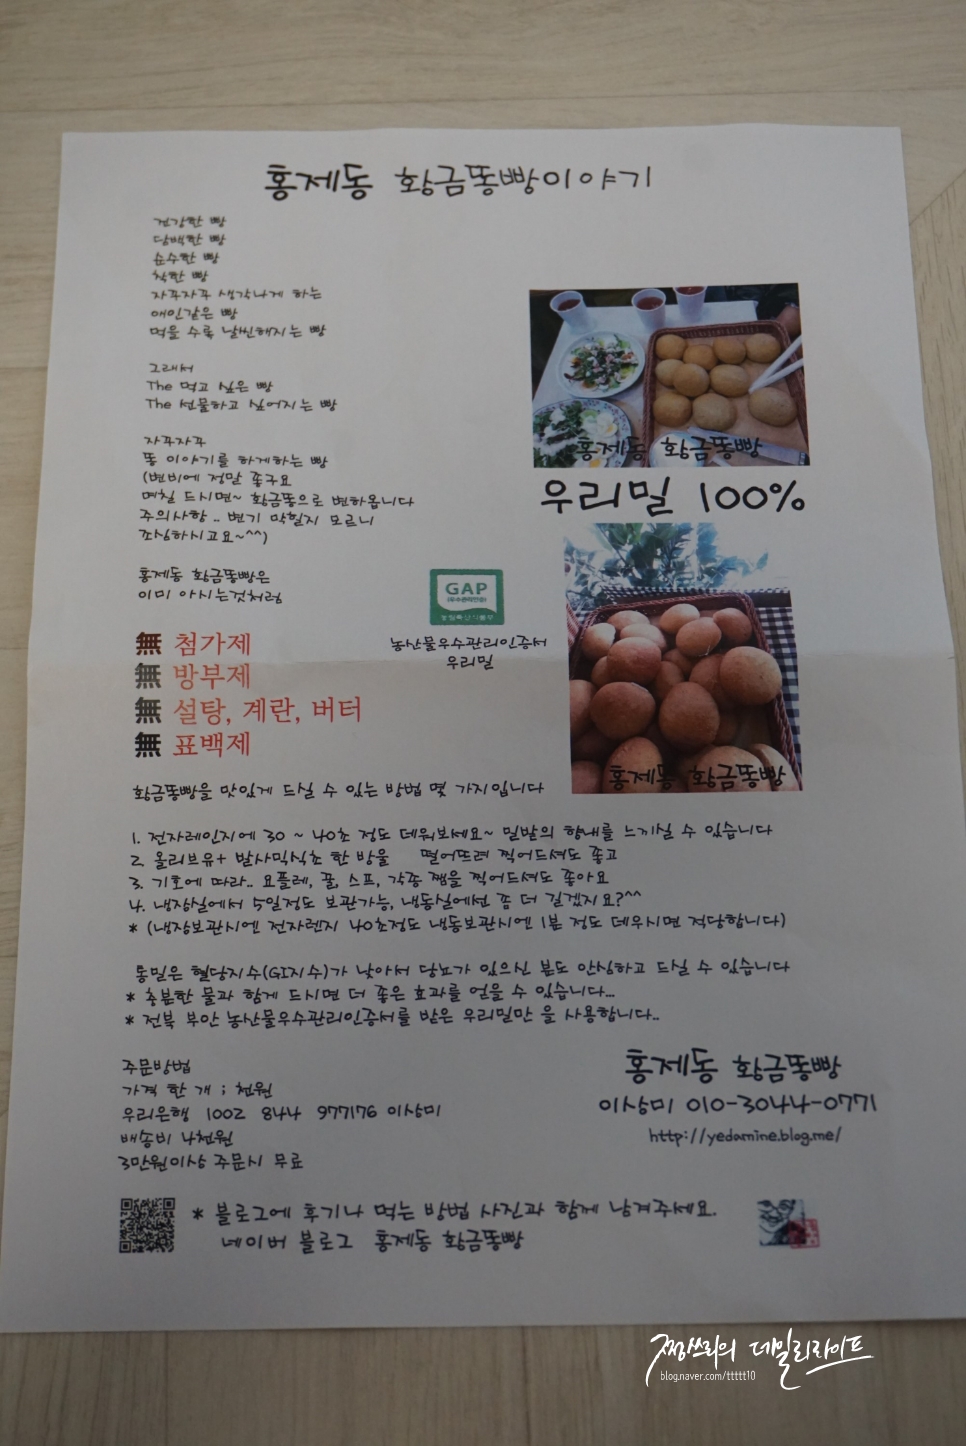 홍제동 황금똥빵이야기
건강한 빵
담백한 빵
순수한 빵
착한 빵
자꾸자꾸 생각나게 하는
애인같은 빵
먹을 수록 날씬해지는 빵
그래서
The 먹고 싶은 빵
The 선물하고 싶어지는 빵
자꾸자꾸
똥 이야기를 하게하는 빵
(변비에 정말 좋구요
며칠 드시면~ 황금똥으로 변하옵니다
주의사항 .. 변기 막힐지 모르니
조심하시고요~^^)
홍제동 황금똥빵은
이미 아시는것처럼
無 첨가제
無 방부제
無 설탕, 계란, 버터
無 표백제
GAP
(우수관리인증)
농산물우수관리인증서
우리밀
홍제동 황금똥빵
우리밀 100%
홍제동 황금똥빵
황금똥빵을 맛있게 드실 수 있는 방법 몇 가지입니다
1. 전자레인지에 30 ~ 40초 정도 데워보세요~ 밀밭의 향내를 느끼실 수 있습니다
2. 올리브유+ 발사믹식초 한 방울 떨어뜨려 찍어드셔도 좋고
3. 기호에 따라.. 요플레, 꿀, 스프, 각종 쨈을 찍어드셔도 좋아요
4. 냉장실에서 5일정도 보관가능, 냉동실에선 좀 더 길겠지요?^^
* (냉장보관시엔 전자렌지 40초정도 냉동보관시엔 1분 정도 데우시면 적당합니다)
통밀은 혈당지수(GI지수)가 낮아서 당뇨가 있으신 분도 안심하고 드실 수 있습니다
* 충분한 물과 함께 드시면 더 좋은 효과를 얻을 수 있습니다...
* 전북 부안 농산물우수관리인증서를 받은 우리밀만 을 사용합니다..
주문방법
가격 한 개 ; 천원
우리은행 1002 844 977176 이상미
배송비 4천원
3만원이상 주문시 무료
홍제동 황금똥빵
이상미 010-3044-0771
http://yedamine.blog.me/
* 블로그에 후기나 먹는 방법 사진과 함께 남겨주세요.
네이버 블로그 홍제동 황금똥빵
찡쓰리의 데일리라이프
blog.naver.com/ttttt10